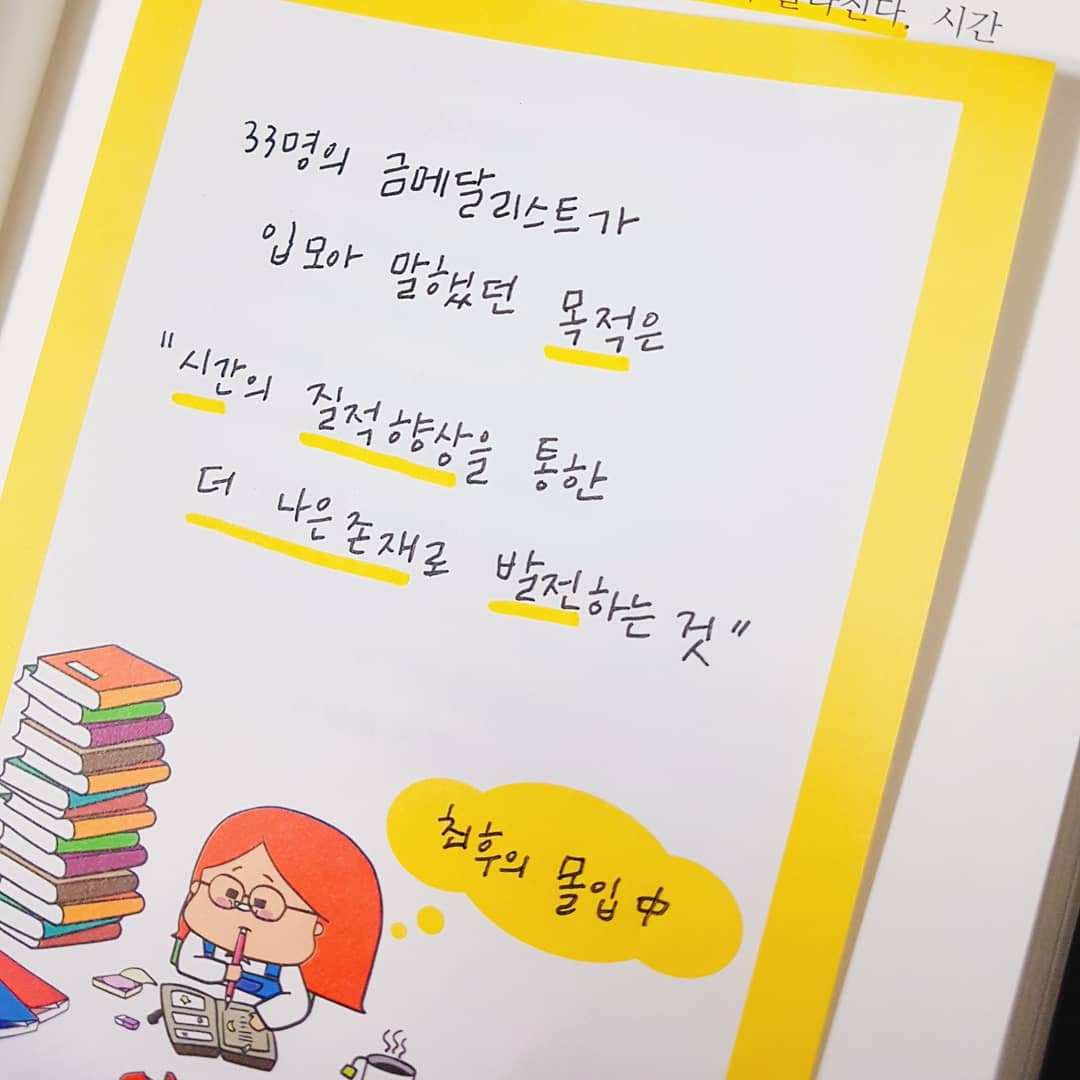 시간
33명의 금메달리스트가
입모아 말했던 목적은
"시간의 질적향상을 통한
더 나은 존재로 발전하는 것"
최후의 몰입 中